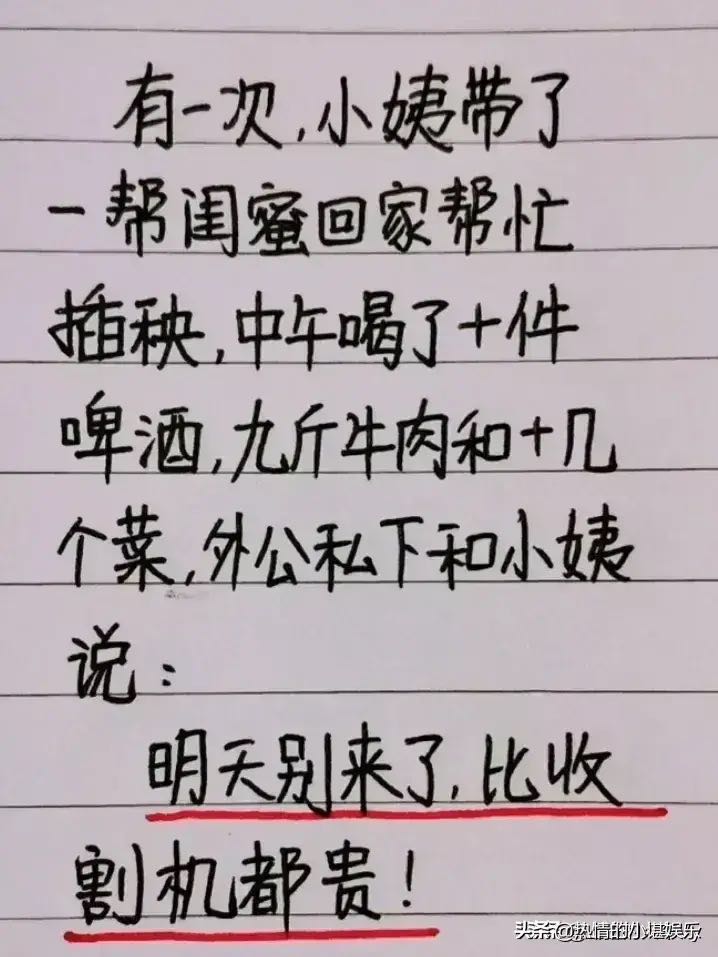 有一次,小姨带了
一帮闺蜜回家帮忙
插秧,中午喝了十件
啤酒,九斤牛肉和十几
个菜,外公私下和小姨
说:
明天别来了,比收
割机都贵!
头条@热情的小堪娱乐